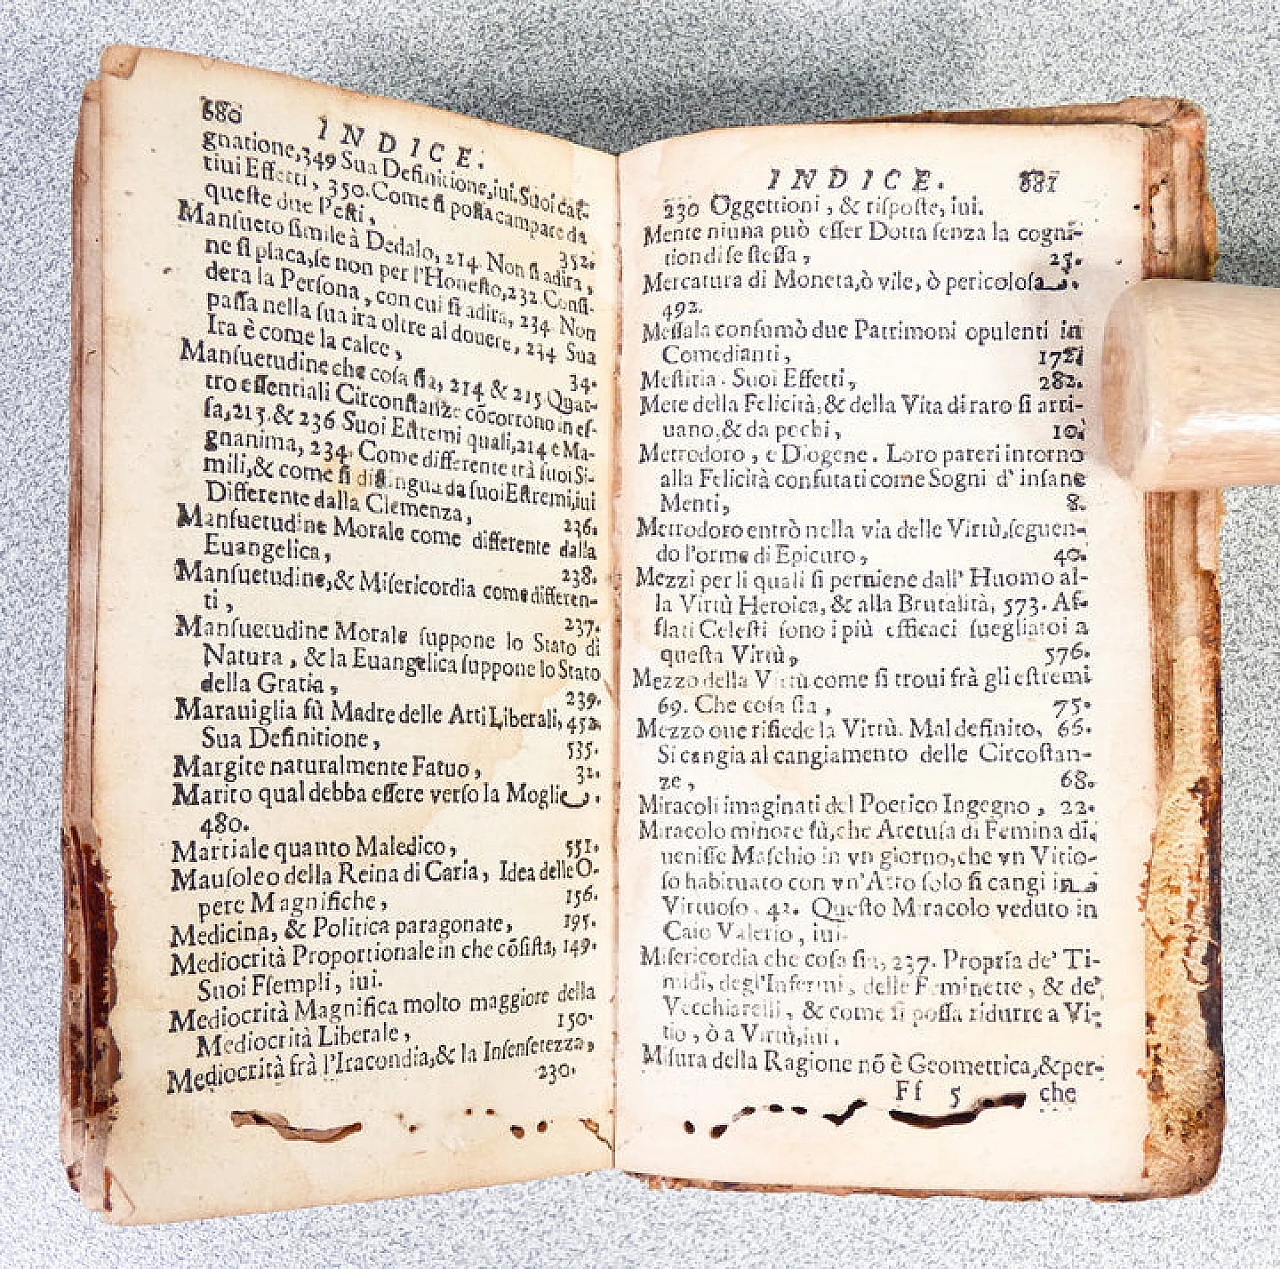 680 INDICE.
gnatione,349 Sua Definitione,iui.Suoi cat-
tiui Effetti, 350. Come si possa campare da
queste due Pesti, 352.
Mansueto simile à Dedalo, 214. Non si adira,
ne si placa,se non per l'Honesto,232 Consi-
dera la Persona, con cui si adira, 234 Non
passa nella sua ira oltre al douere, 234 Sua
Ira è come la calce, 34.
Mansuetudine che cosa sia, 214 & 215 Quat-
tro essentiali Circonstanze cōcorrono in es-
sa,215.& 236 Suoi Estremi quali,214 e Ma-
gnanima, 234. Come differente trà suoi Si-
mili,& come si distingua da suoi Estremi,iui
Differente dalla Clemenza, 236.
Mansuetudine Morale come differente dalla
Euangelica, 238.
Mansuetudine,& Misericordia come differen-
ti, 237.
Mansuetudine Morale suppone lo Stato di
Natura, & la Euangelica suppone lo Stato
della Gratia, 239.
Marauiglia fù Madre delle Atti Liberali, 452.
Sua Definitione, 535.
Margite naturalmente Fatuo, 32.
Marito qual debba essere verso la Moglie.
480.
Martiale quanto Maledico, 551.
Mausoleo della Reina di Caria, Idea delle O-
pere Magnifiche, 156.
Medicina, & Politica paragonate, 195.
Mediocrità Proportionale in che cōsista, 149.
Suoi Fsempli, iui.
Mediocrità Magnifica molto maggiore della
Mediocrità Liberale, 150.
Mediocrità frà l'Iracondia,& la Insensetezza,
230.
INDICE. 681
230 Oggettioni, & risposte, iui.
Mente niuna può esser Dotta senza la cogni-
tion di se stessa, 25.
Mercatura di Moneta,ò vile, ò pericolosa.
492.
Messala consumò due Patrimoni opulenti in
Comedianti, 172
Mestitia. Suoi Effetti, 282.
Mete della Felicità,& della Vita di raro si arri-
uano,& da pochi, 10.
Metrodoro, e Diogene. Loro pareri intorno
alla Felicità confutati come Sogni d' insane
Menti, 8.
Metrodoro entrò nella via delle Virtù,seguen-
do l'orme di Epicuro, 40.
Mezzi per li quali si peruiene dall' Huomo al-
la Virtù Heroica, & alla Brutalità, 573. Af-
flati Celesti sono i più efficaci suegliatoi a
questa Virtù, 576.
Mezzo della Virtù come si troui frà gli estremi
69. Che cosa sia, 75.
Mezzo oue risiede la Virtù. Mal definito, 66.
Si cangia al cangiamento delle Circostan-
ze, 68.
Miracoli imaginati del Poetico Ingegno, 22.
Miracolo minore fù,che Aretusa di Femina di-
uenisse Maschio in vn giorno,che vn Vitio-
so habituato con vn'Atto solo si cangi in
Virtuoso. 42. Questo Miracolo veduto in
Caio Valerio, iui.
Misericordia che cosa sia, 237. Propria de' Ti-
midi, degl'Infermi, delle Feminette, & de'
Vecchiarelli, & come si possa ridurre a Vi-
tio, ò a Virtù,iui.
Misura della Ragione nō è Geometrica,&per-
Ff 5 che